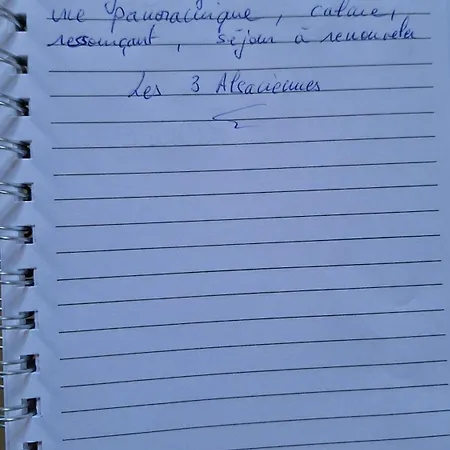 vue panoramique, calme,
ressourçant, séjour à renouveler
Les 3 Alsaciennes